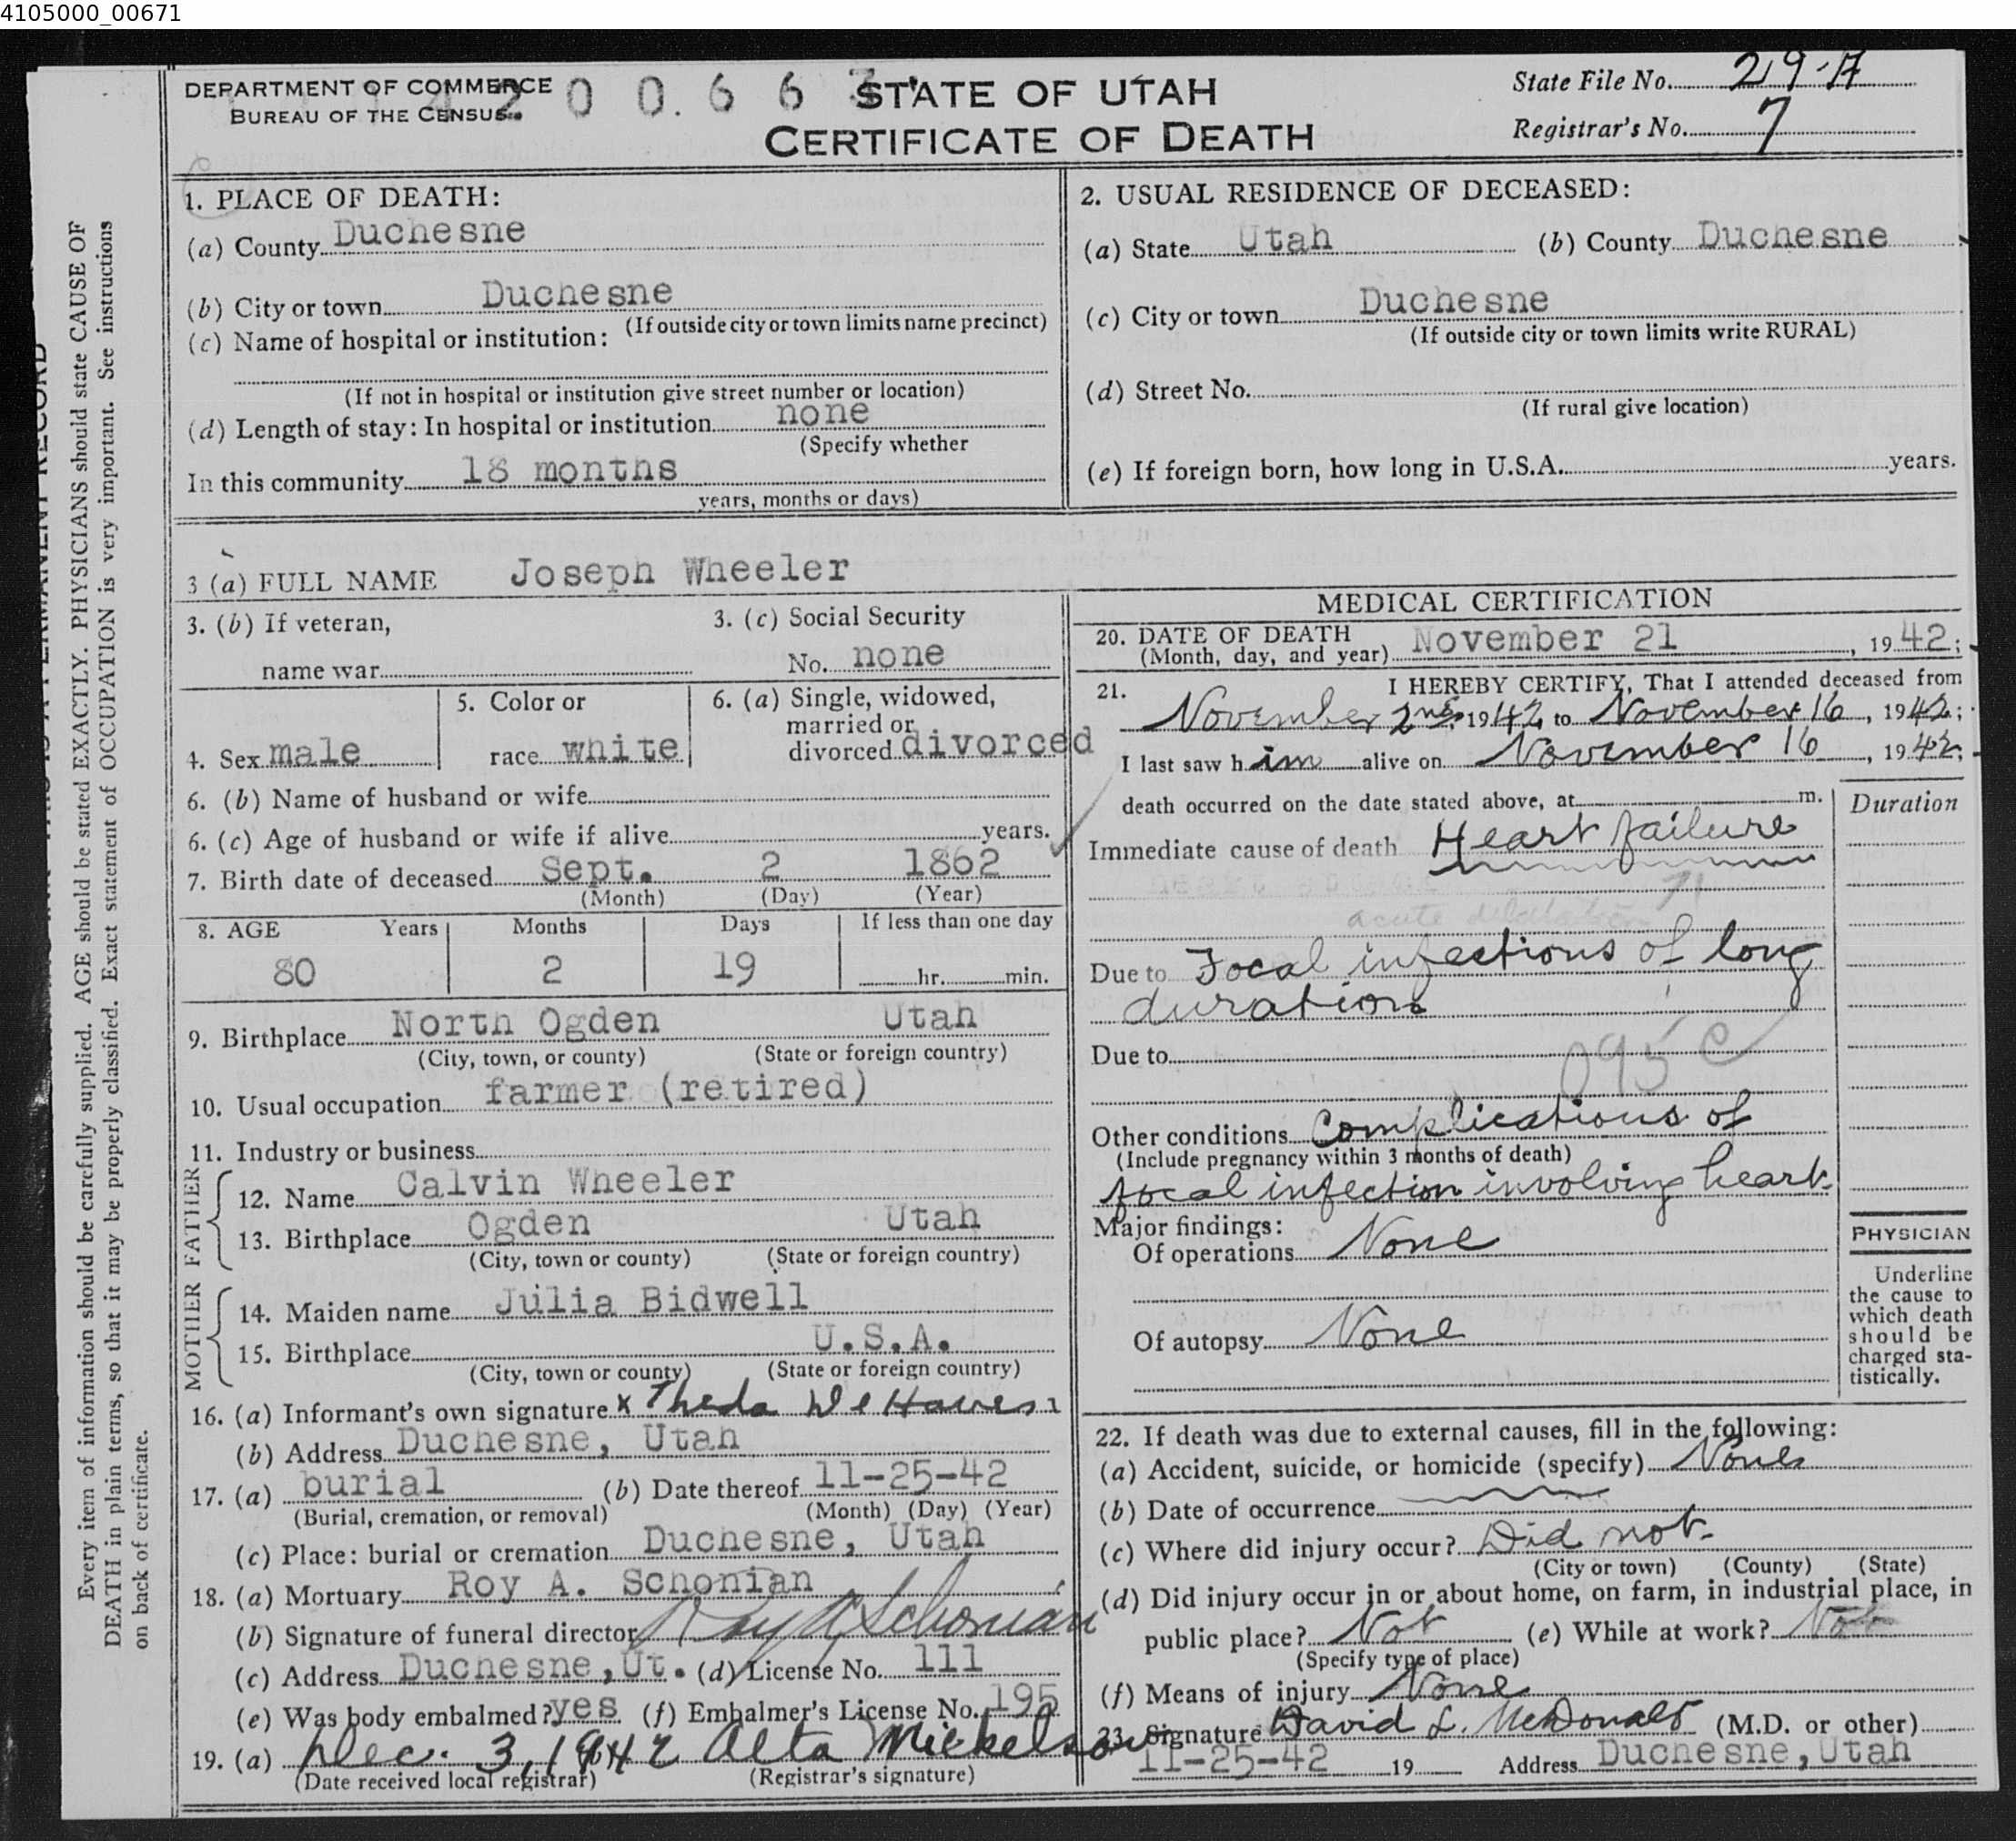 4105000_00671
DEPARTMENT OF COMMERCE
BUREAU OF THE CENSUS
2 0 0 . 6 6
STATE OF UTAH
CERTIFICATE OF DEATH
State File No. 29-A
Registrar's No. 7
Every item of information should be carefully supplied. AGE should be stated EXACTLY. PHYSICIANS should state CAUSE OF
DEATH in plain terms, so that it may be properly classified. Exact statement of OCCUPATION is very important. See instructions
on back of certificate.
1. PLACE OF DEATH:
(a) County Duchesne
(b) City or town Duchesne
(If outside city or town limits name precinct)
(c) Name of hospital or institution:
(If not in hospital or institution give street number or location)
(d) Length of stay: In hospital or institution none
(Specify whether
In this community 18 months
years, months or days)
2. USUAL RESIDENCE OF DECEASED:
(a) State Utah (b) County Duchesne
(c) City or town Duchesne
(If outside city or town limits write RURAL)
(d) Street No.
(If rural give location)
(e) If foreign born, how long in U.S.A. years.
3 (a) FULL NAME Joseph Wheeler
3. (b) If veteran,
name war
3. (c) Social Security
No. none
4. Sex male
5. Color or
race white
6. (a) Single, widowed,
married or
divorced divorced
6. (b) Name of husband or wife
6. (c) Age of husband or wife if alive years.
7. Birth date of deceased Sept. 2 1862
(Month) (Day) (Year)
8. AGE Years Months Days If less than one day
80 2 19 hr. min.
9. Birthplace North Ogden Utah
(City, town, or county) (State or foreign country)
10. Usual occupation farmer (retired)
11. Industry or business
FATHER
12. Name Calvin Wheeler
13. Birthplace Ogden Utah
(City, town or county) (State or foreign country)
MOTHER
14. Maiden name Julia Bidwell
15. Birthplace U.S.A.
(City, town or county) (State or foreign country)
16. (a) Informant's own signature x Theda
(b) Address Duchesne, Utah
17. (a) burial (b) Date thereof 11-25-42
(Burial, cremation, or removal) (Month) (Day) (Year)
(c) Place: burial or cremation Duchesne, Utah
18. (a) Mortuary Roy A. Schonian
(b) Signature of funeral director Roy A Schonian
(c) Address Duchesne, Ut. (d) License No. 111
(e) Was body embalmed? yes (f) Embalmer's License No. 195
19. (a) Dec. 3, 1942 Alta Mickelson
(Date received local registrar) (Registrar's signature)
MEDICAL CERTIFICATION
20. DATE OF DEATH
(Month, day, and year) November 21, 1942;
21. I HEREBY CERTIFY, That I attended deceased from
November 2nd, 1942 to November 16, 1942;
I last saw him alive on November 16, 1942;
death occurred on the date stated above, at m.
Duration
Immediate cause of death Heart failure
acute dilatation
Due to Focal infections of long
duration
Due to
095 c
Other conditions Complications of
(Include pregnancy within 3 months of death)
focal infection involving heart.
Major findings:
Of operations None
Of autopsy None
PHYSICIAN
Underline
the cause to
which death
should be
charged sta-
tistically.
22. If death was due to external causes, fill in the following:
(a) Accident, suicide, or homicide (specify) None
(b) Date of occurrence
(c) Where did injury occur? Did not
(City or town) (County) (State)
(d) Did injury occur in or about home, on farm, in industrial place, in
public place? Not (e) While at work? Not
(Specify type of place)
(f) Means of injury None
23. Signature David L. McDonald (M.D. or other)
11-25-42 19 Address Duchesne, Utah